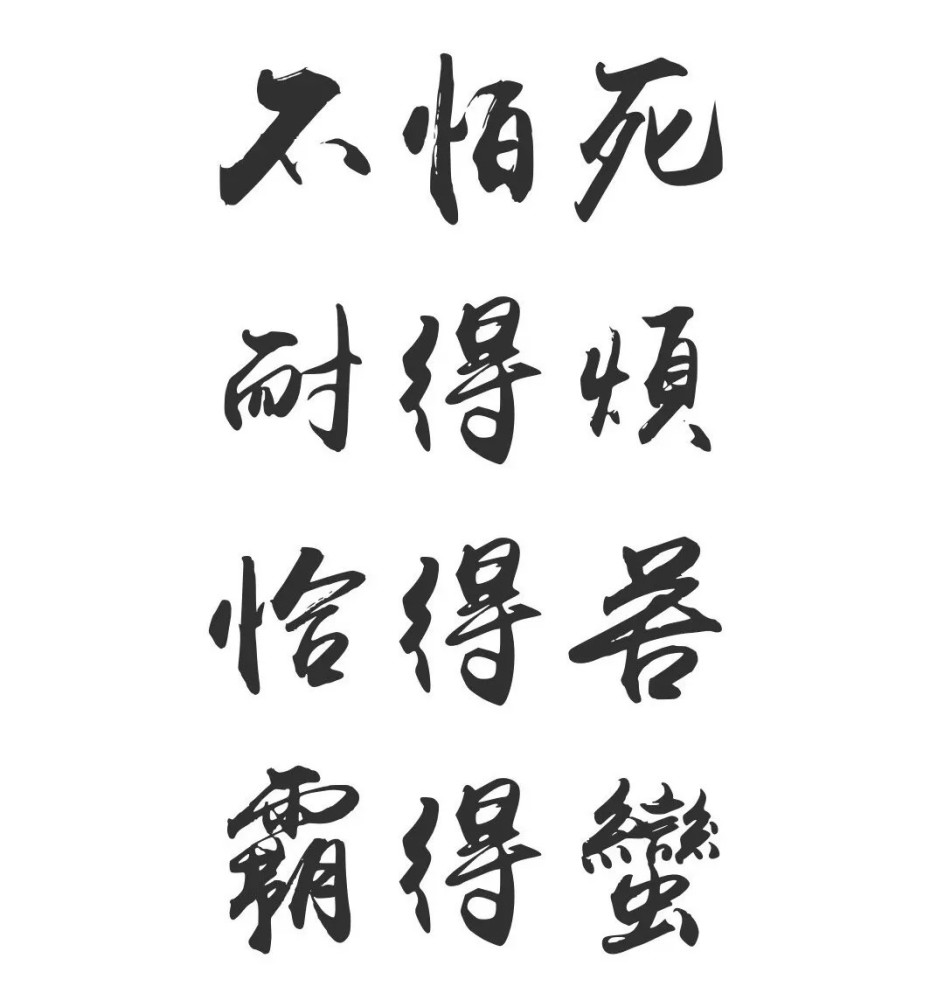 不怕死
耐得煩
恰得苦
霸得蠻